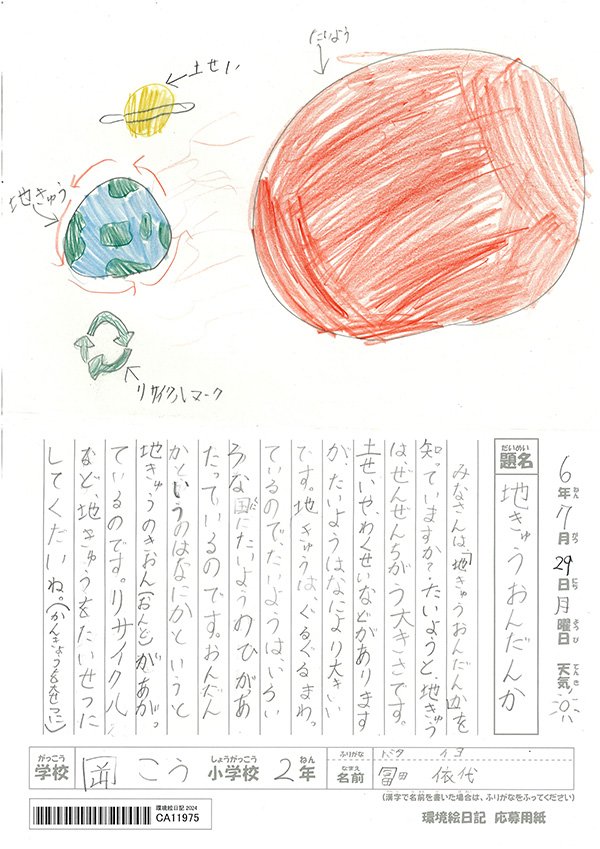 たいよう
土せい
地きゅう
リサイクルマーク
6年7月29日月曜日 天気
ねん がつ にち ようび てんき
だいめい
題名
地きゅうおんだんか
みなさんは、「地きゅうおんだんか」を
知っていますか？たいようと、地きゅう
はぜんぜんちがう大きさです。
土せいや、わくせいなどがあります
が、たいようはなにより大きい
です。地きゅうは、ぐるぐるまわっ
ているので、たいようは、いろい
ろな国にたいようのひがあ
たっているのです。おんだん
かというのはなにかというと
地きゅうのきおん(おんど)が、あがっ
ているのです。リサイクル
など、地きゅうをたいせつに
してくだいね。(かんきょうも大せつに)
がっこう
学校 こう
しょうがっこう ねん
小学校 2年
ふりがな
なまえ
名前 冨田 依代
(漢字で名前を書いた場合は、ふりがなをふってください)
環境絵日記 2024
CA11975
環境絵日記 応募用紙